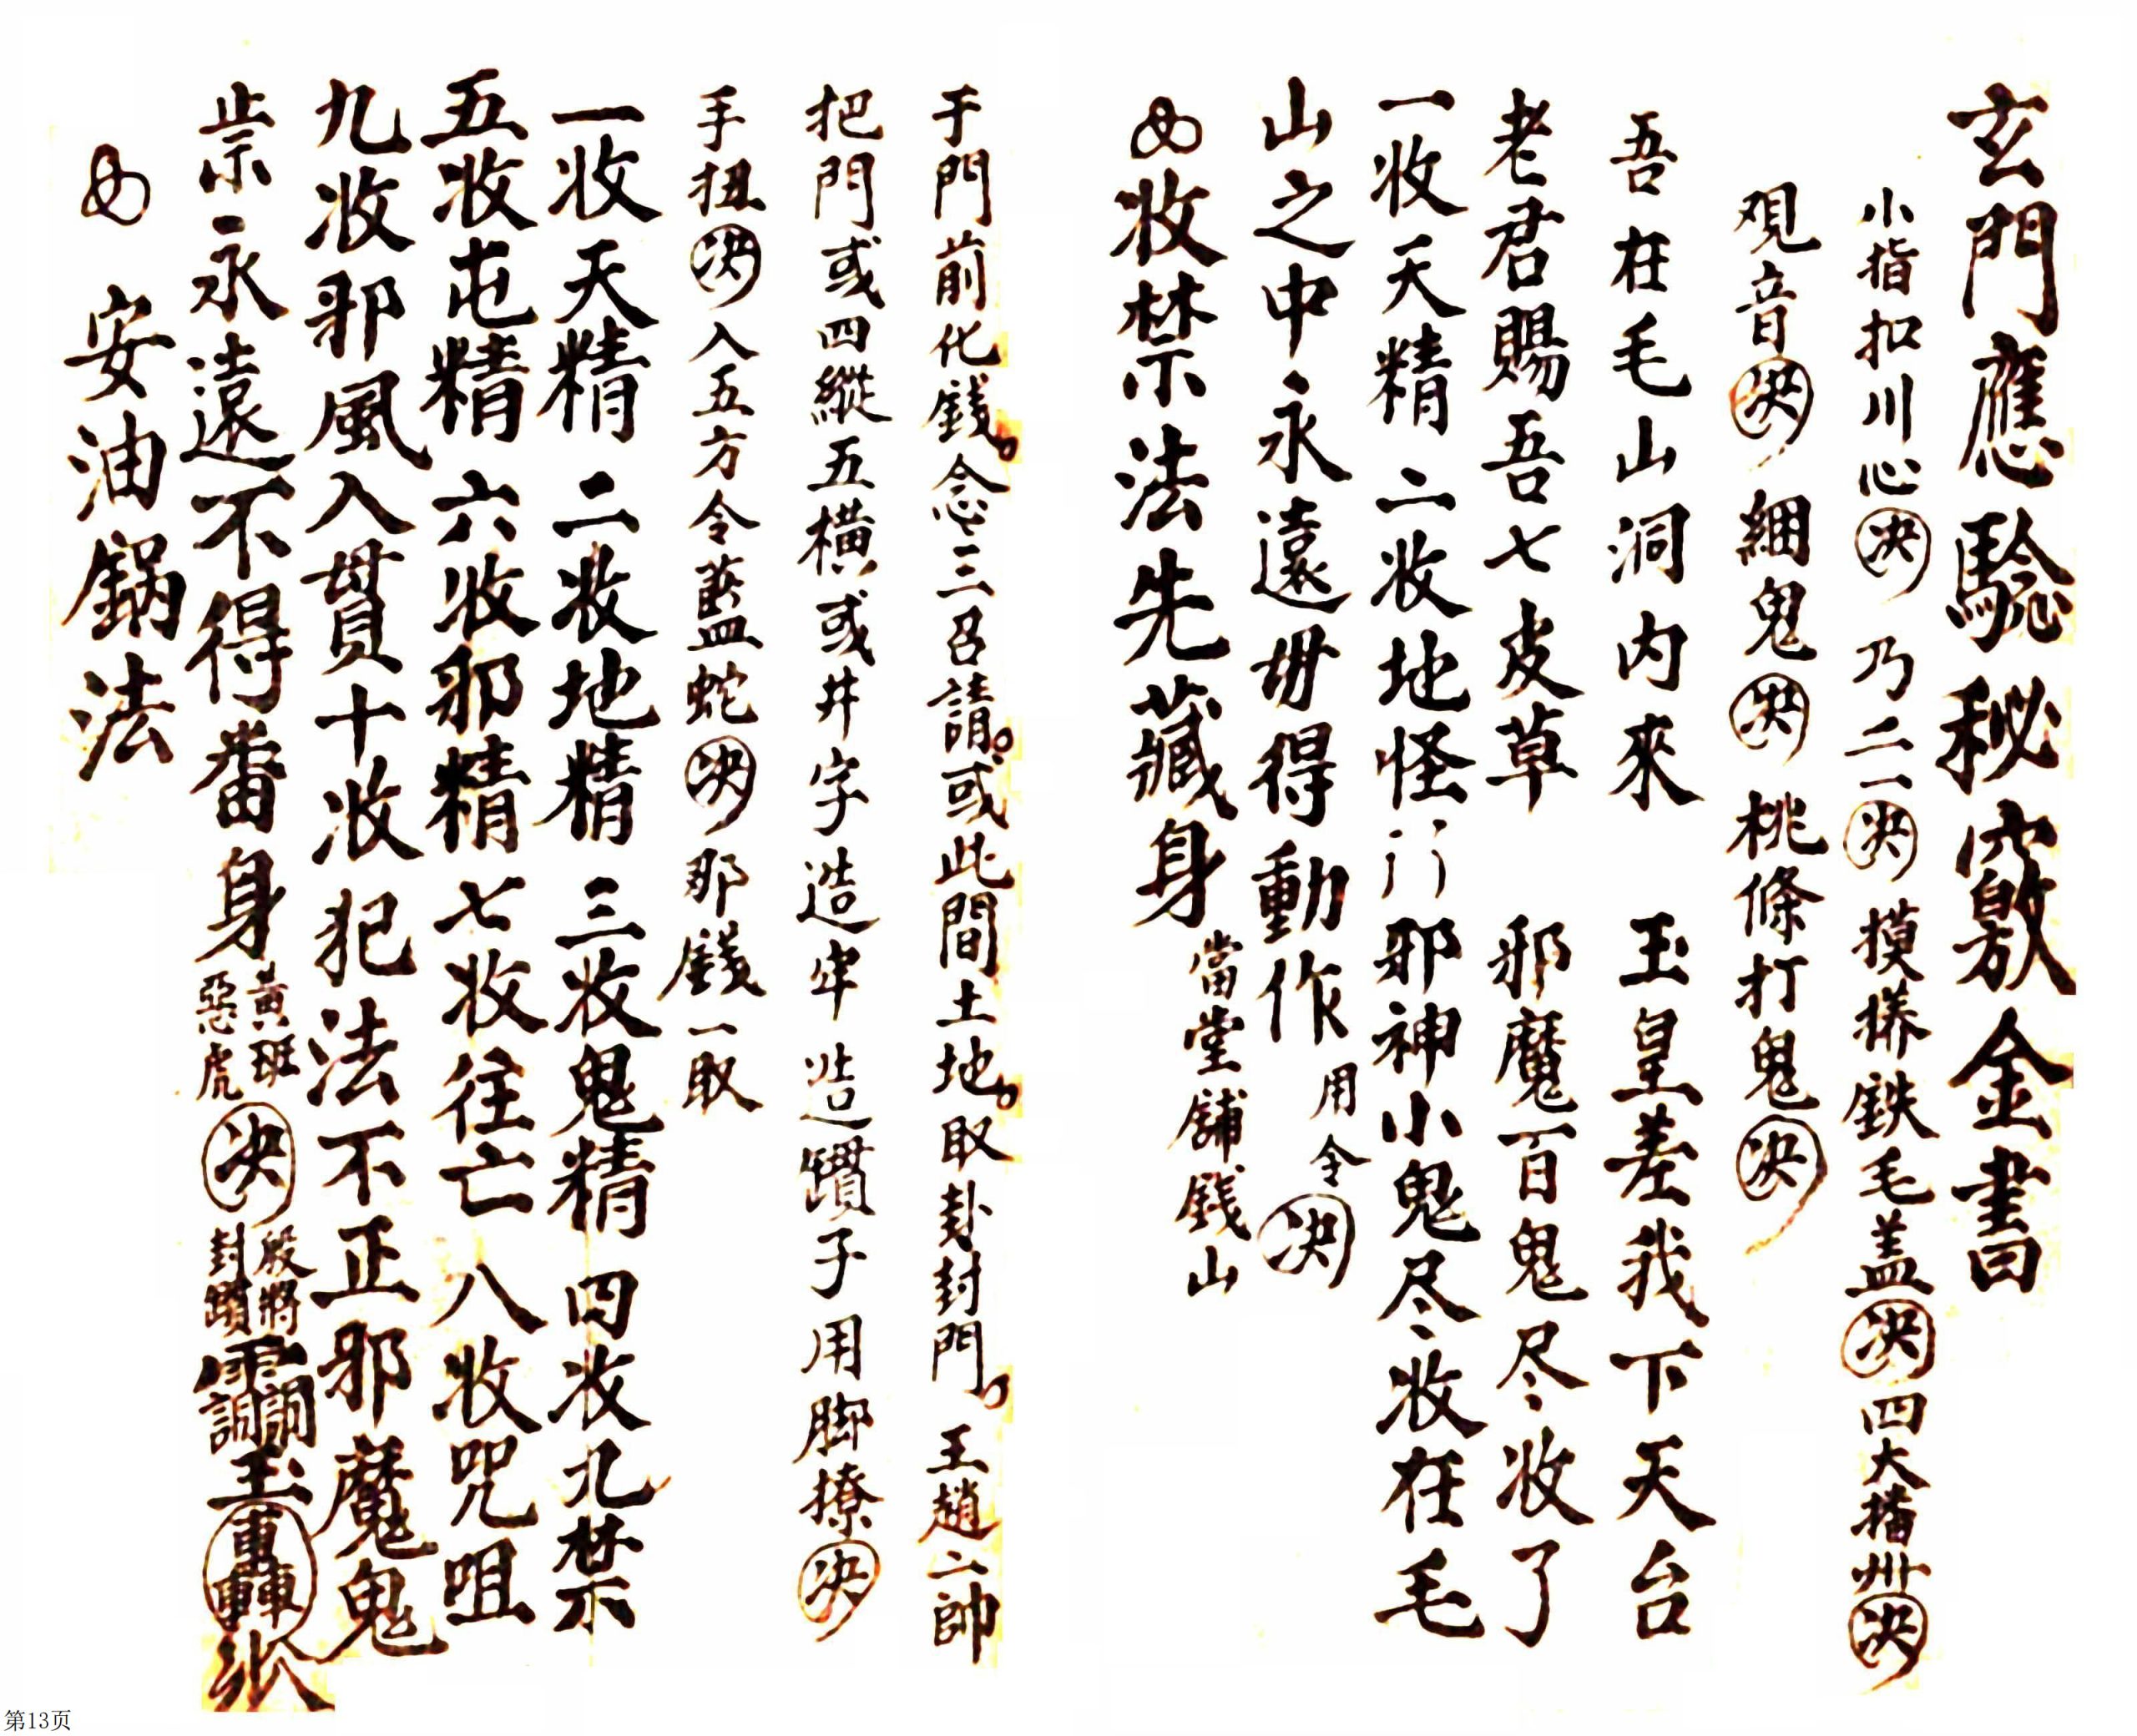 玄門應驗秘竅金書
小指扣川心決 乃二一決 摸捺鉄毛盖決 四大播州決
观音決 綑鬼決 桃條打鬼決
吾在毛山洞内來 玉皇差我下天台
老君賜吾七皮草 邪魔百鬼尽收了
一收天精二收地怪 邪神小鬼尽收在毛
山之中永遠毋得動作 用令決
收禁法先藏身 當堂舖錢山
于門前化錢。念三召請。或此間土地。取卦封門。王趙二帥
把門或四縱五橫或井字造牢 造躀子用脚撩決
手扭決入五方令藍蛇決 那錢一取
一收天精 二收地精 三收鬼精 四收九禁
五收屯精 六收邪精 七收往亡 八收咒咀
九收邪風入貫十收犯法不正邪魔鬼
祟永遠不得番身 黃班惡虎決 殷將封
安油鍋法
第13页